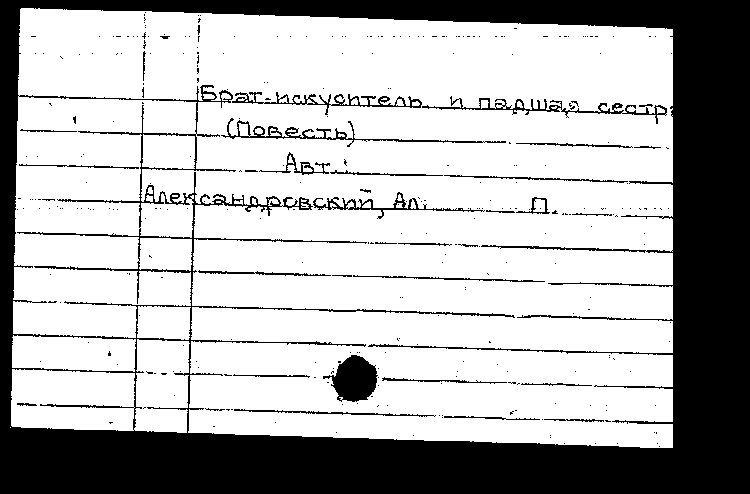 Брат-искуситель и падшая сестра
(Повесть)
Авт.:
Александровский, Ал. П.